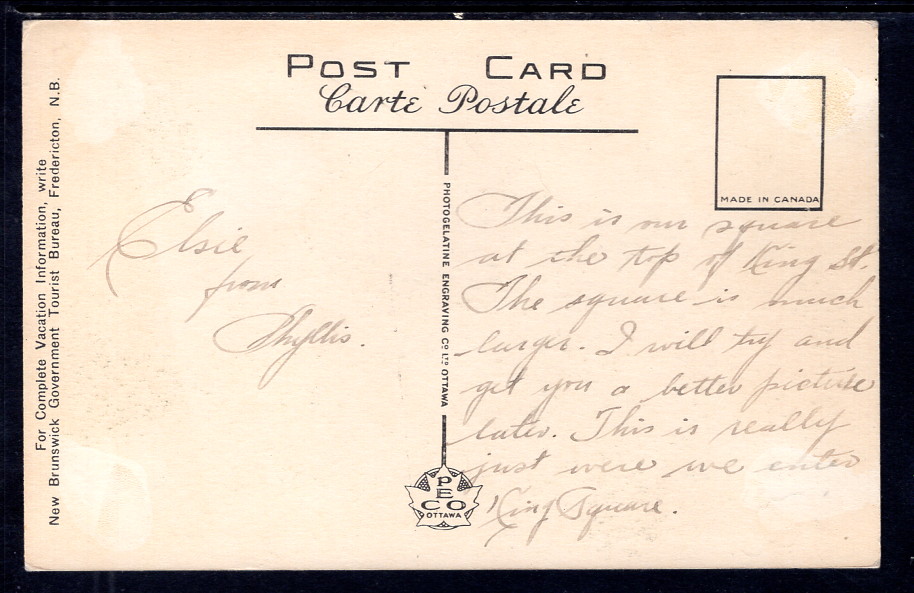 POST CARD
Carte Postale
For Complete Vacation Information, write
New Brunswick Government Tourist Bureau, Fredericton, N.B.
MADE IN CANADA
PHOTOGELATINE ENGRAVING CO LTD OTTAWA
Elsie
from
Phyllis.
This is our square
at the top of King St.
The square is much
larger. I will try and
get you a better picture
later. This is really
just were we enter
King Square.
PECO
OTTAWA